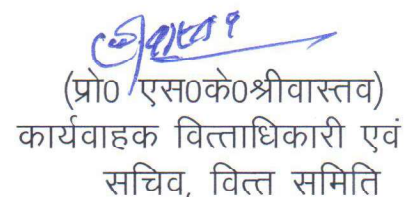 (प्रो0 एस0के0श्रीवास्तव)
कार्यवाहक वित्ताधिकारी एवं
सचिव, वित्त समिति